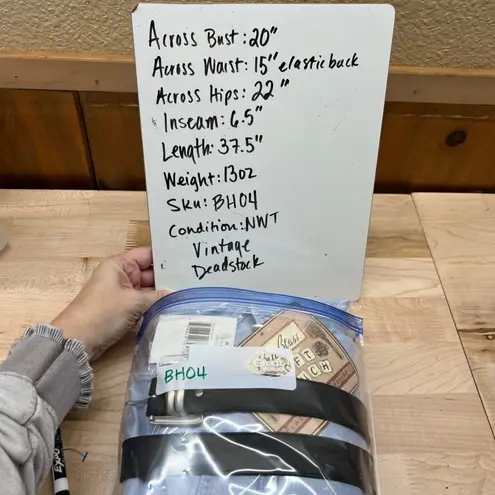 Across Bust: 20"
Across Waist: 15" elastic back
Across Hips: 22"
Inseam: 6.5"
Length: 37.5"
Weight: 13oz
Sku: BH04
Condition: NWT
Vintage
Deadstock
BH04
EXPO